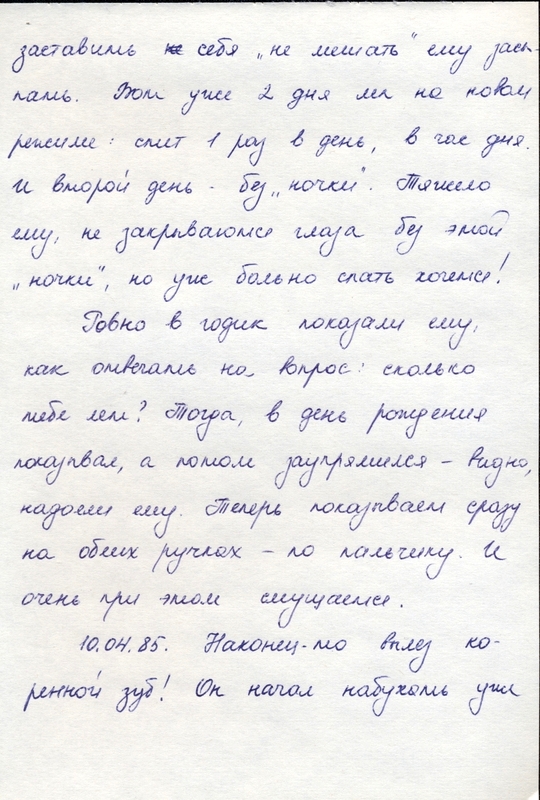 заставить себя „не мешать" ему засы-
пать. Вот уже 2 дня мы на новом
режиме: спит 1 раз в день, в час дня.
И второй день - без „ночки". Тяжело
ему, не закрываются глаза без этой
„ночки", но уж больно спать хочется!
Ровно в годик показали ему,
как отвечать на вопрос: сколько
тебе лет? Тогда, в день рождения
показывал, а потом заупрямился – видно,
надоели ему. Теперь показывает сразу
на обеих ручках – по пальчику. И
очень при этом смущается.
10.04.85. Наконец-то вылез ко-
ренной зуб! Он начал набухать уже